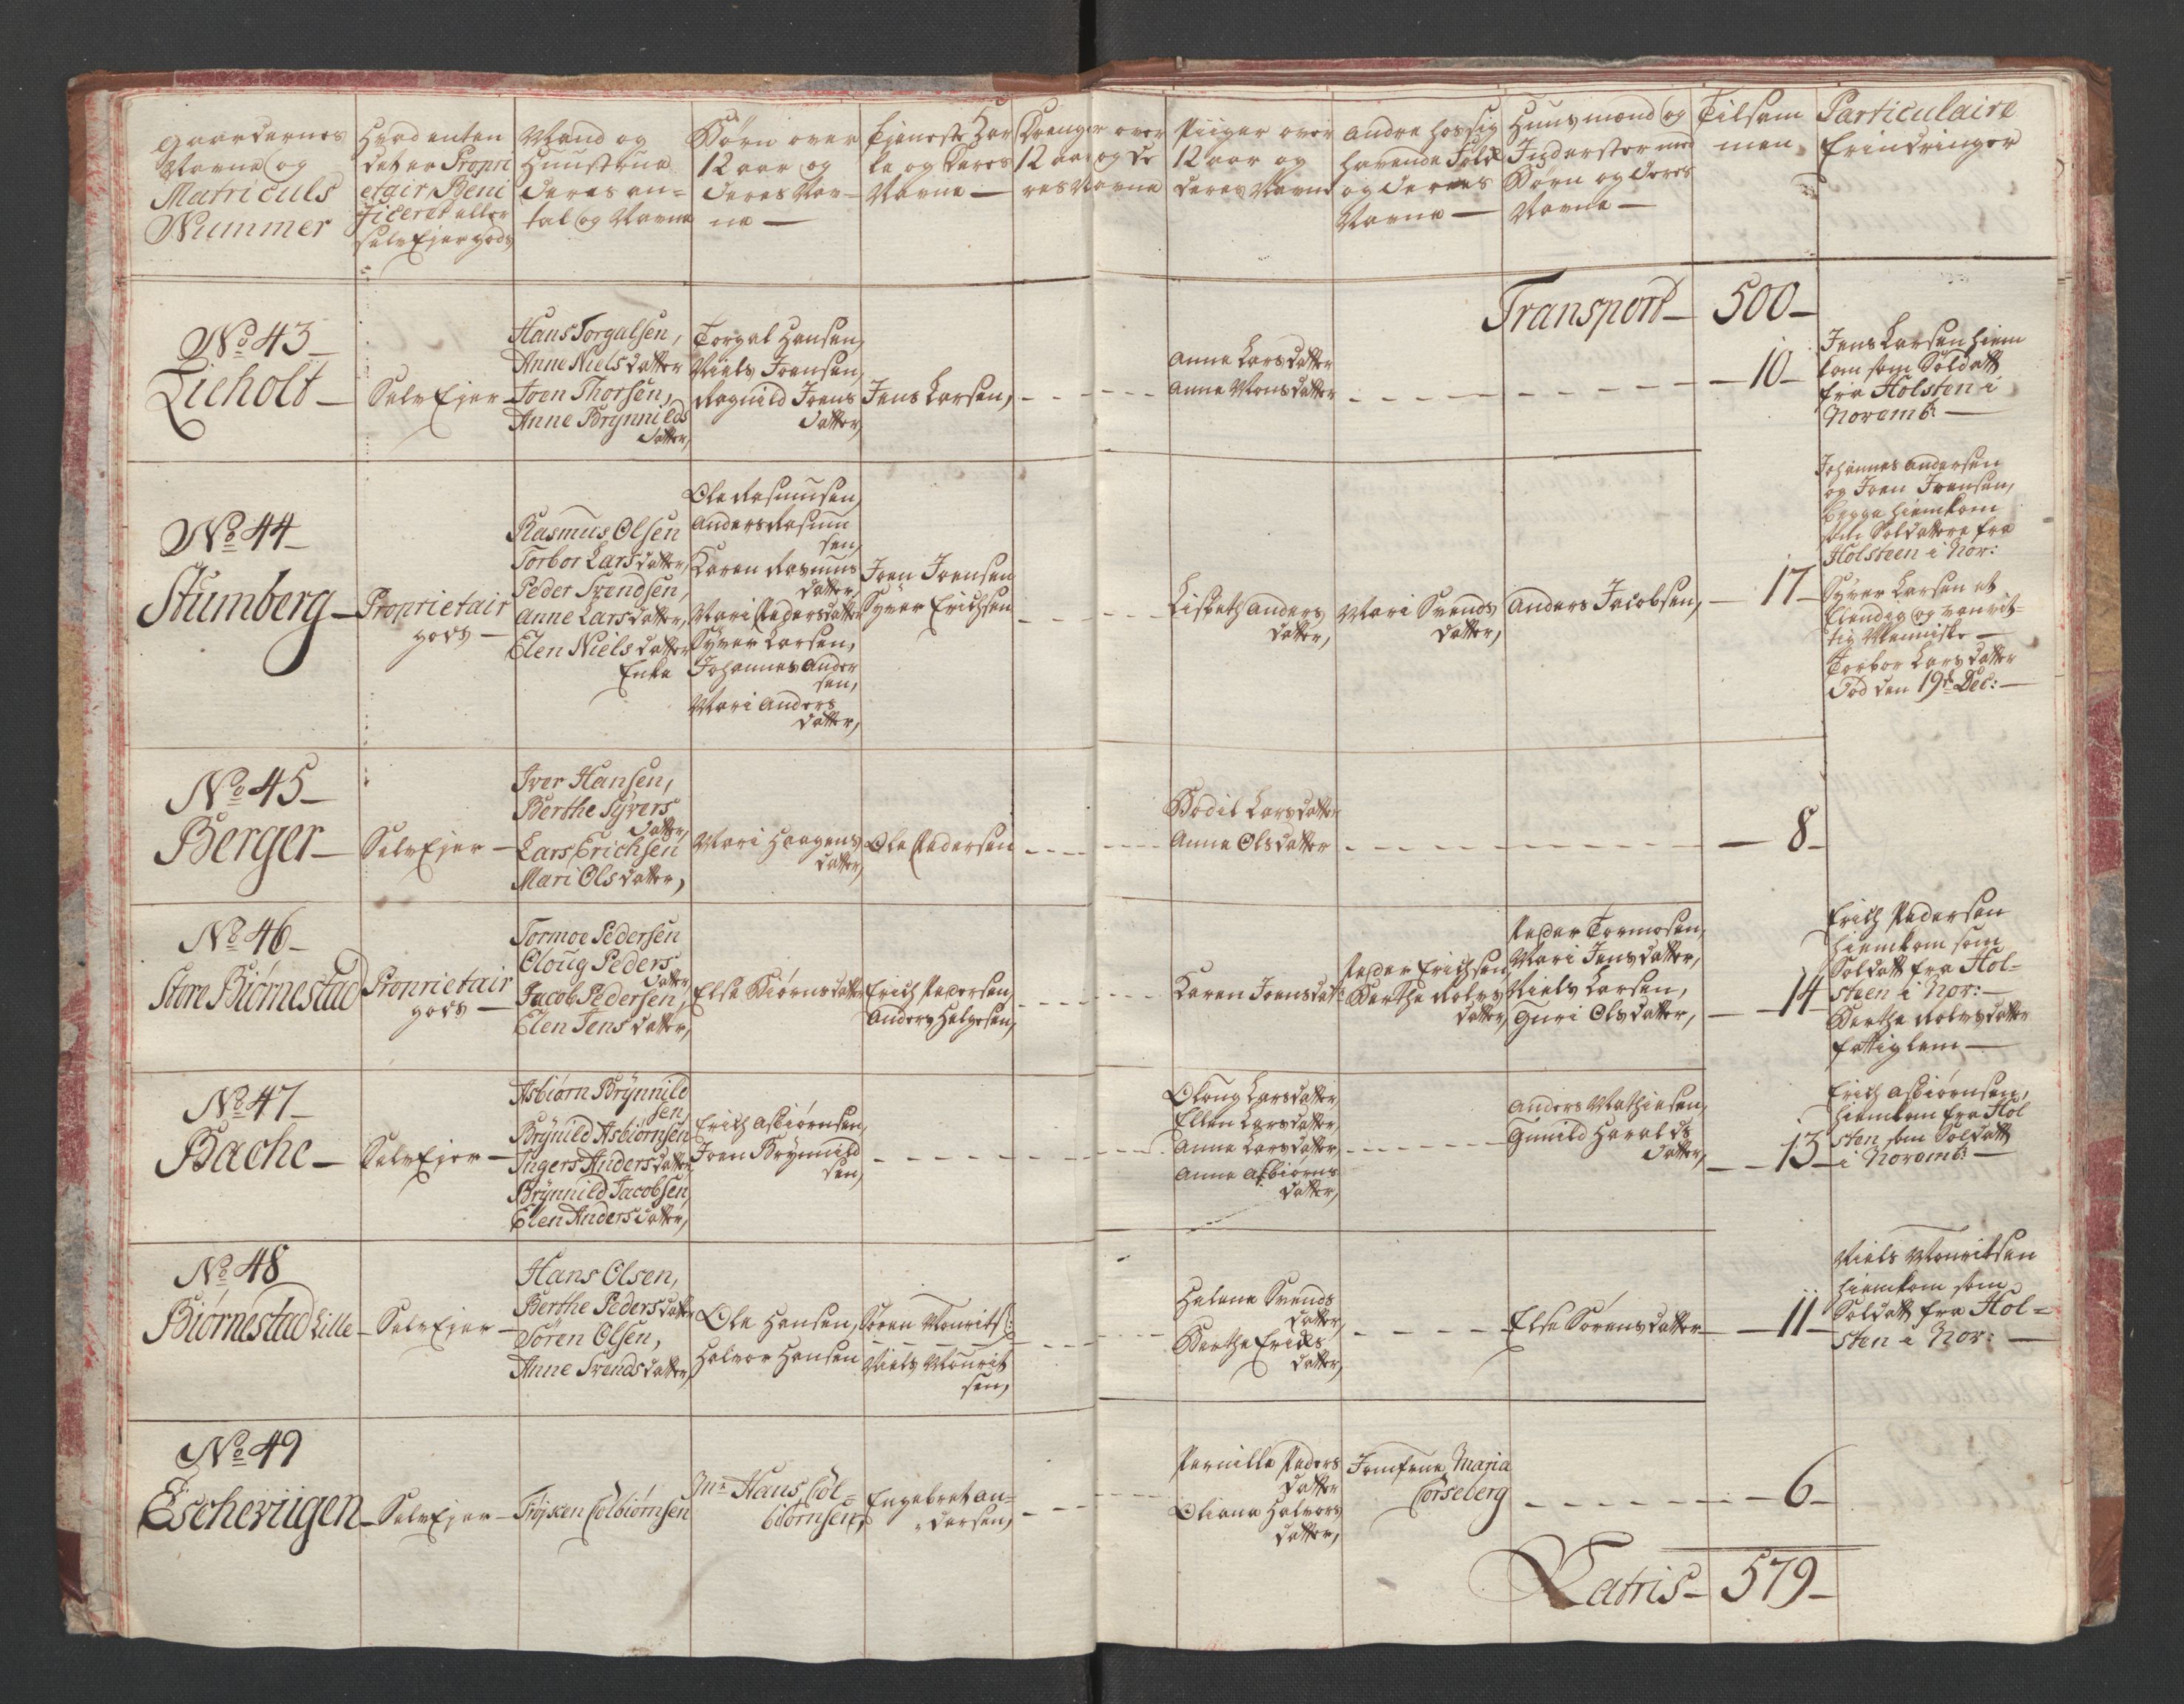 Gaardernes
Navne og
Matriculs
Nummer
Hvad enten
det er Propri
etair, Beni
ficeret eller
SelvEjer gods
Mand og
Huustrue
deres an-
tal og Navne
Børn over
12 aar og
deres Nav-
ne —
Tjeneste Kar
le og deres
Navne —
Drenge over
12 aar og de
res Navne
Piiger over
12 aar og
deres Navne
Andre hos sig
havende Folk
og deres
Navne —
Huusmænd og
Inderster med
Børn og deres
Navne —
Tilsam
men
Particulaire
Erindringer
Transport — 500 —
No 43 —
Lieholt —
SelvEjer —
Hans Torgalsen,
Anne Nielsdatter
Joen Thorsen,
Anne Brynnilds
datter,
Torgal Hansen,
Niels Joensen,
Ragnild Joens
datter,
Jens Larsen,
Anne Larsdatter
Anne Monsdatter
— 10 —
Jens Larsen hiem
kom som Soldatt
fra Holsten i
Novemb: —
No 44 —
Stumberg —
Proprietair
gods —
Rasmus Olsen
Torbor Larsdatter,
Peder Svendsen,
Anne Larsdatter,
Elen Nielsdatter
Enke
Ole Rasmusen,
Anders Rasmu
sen,
Karen Rasmus
datter,
Mari Pedersdatter
Syver Larsen,
Johannes Ander
sen,
Mari Anders
datter,
Joen Joensen
Syver Erichsen
Lisbeth Anders
datter,
Mari Svends
datter,
Anders Jacobsen,
— 17 —
Johannes Andersen
og Joen Joensen,
begge hiemkom
som Soldattere fra
Holsteen i Nov:
Syver Larsen et
Elendig og vanvit-
tig Menniske —
Torbor Larsdatter
Død den 19de Dec: —
No 45 —
Berger —
SelvEjer —
Iver Hansen,
Berthe Syvers
datter,
Lars Erichsen
Mari Olsdatter,
Mari Haagens
datter,
Ole Pedersen
Bodil Larsdatter
Anne Olsdatter
— 8 —
No 46 —
Store Biørnestad
Proprietair
gods —
Tormoe Pedersen
Oloug Peders
datter,
Jacob Pedersen,
Elen Jensdatter,
Else Biørnsdatter
Erich Pedersen,
Anders Helgesen,
Karen Joensdat:
Peder Erichsen,
Berthe Rolvs
datter,
Peder Tormosen,
Mari Jensdatter,
Niels Larsen,
Guri Olsdatter,
— 14 —
Erich Pedersen
hiemkom som
Soldatt fra Hol-
steen i Nov: —
Berthe Rolvsdatter
fattig lem —
No 47 —
Bache —
SelvEjer —
Asbiørn Brynnild
sen,
Brynild Asbiørnsen
Ingers Andersdatter,
Brynnild Jacobsen,
Elen Andersdatter,
Erich Asbiørnsen,
Joen Brynnild
sen,
Oloug Larsdatter,
Ellen Larsdatter,
Anne Larsdatter,
Anne Asbiørns
datter,
Anders Mathiesen,
Gunild Haralds
datter,
— 13 —
Erich Asbiørnsen,
hiemkom fra Hol
sten som Soldatt
i Novemb: —
No 48
Biørnestad Lille —
SelvEjer —
Hans Olsen,
Berthe Pedersdatter
Søren Olsen,
Anne Svendsdatter,
Ole Hansen,
Halvor Hansen
Søren Mouritz:
Niels Mourit
sen,
Helene Svends
datter,
Berthe Erichs
datter,
Else Sørensdatter
— 11 —
Niels Mouritsen
hiemkom som
Soldatt fra Hol-
sten i Nov: —
No 49
Escheviigen —
SelvEjer —
Frøjsen Colbiørnsen
Mr Hans Col-
biørnsen,
Engebret An-
dersen,
Pernille Peders
datter
Oliana Halvors
datter,
Jomfrue Maria
Corseberg
— 6 —
Latris — 579 —